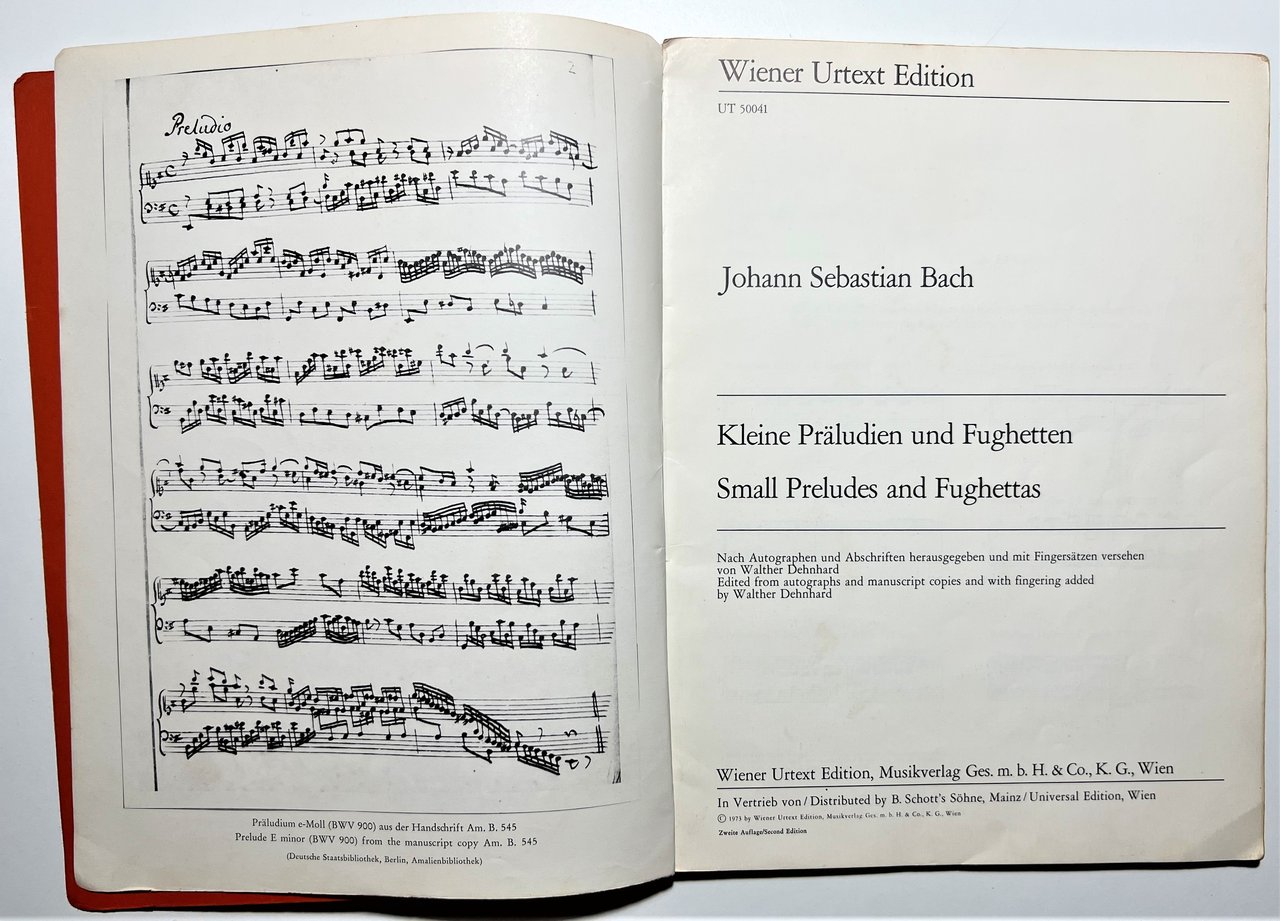 2
Preludio
Präludium e-Moll (BWV 900) aus der Handschrift Am. B. 545
Prelude E minor (BWV 900) from the manuscript copy Am. B. 545
(Deutsche Staatsbibliothek, Berlin, Amalienbibliothek)
Wiener Urtext Edition
UT 50041
Johann Sebastian Bach
Kleine Präludien und Fughetten
Small Preludes and Fughettas
Nach Autographen und Abschriften herausgegeben und mit Fingersätzen versehen
von Walther Dehnhard
Edited from autographs and manuscript copies and with fingering added
by Walther Dehnhard
Wiener Urtext Edition, Musikverlag Ges. m. b. H. & Co., K. G., Wien
In Vertrieb von / Distributed by B. Schott's Söhne, Mainz / Universal Edition, Wien
© 1973 by Wiener Urtext Edition, Musikverlag Ges. m. b. H. & Co., K. G., Wien
Zweite Auflage/Second Edition